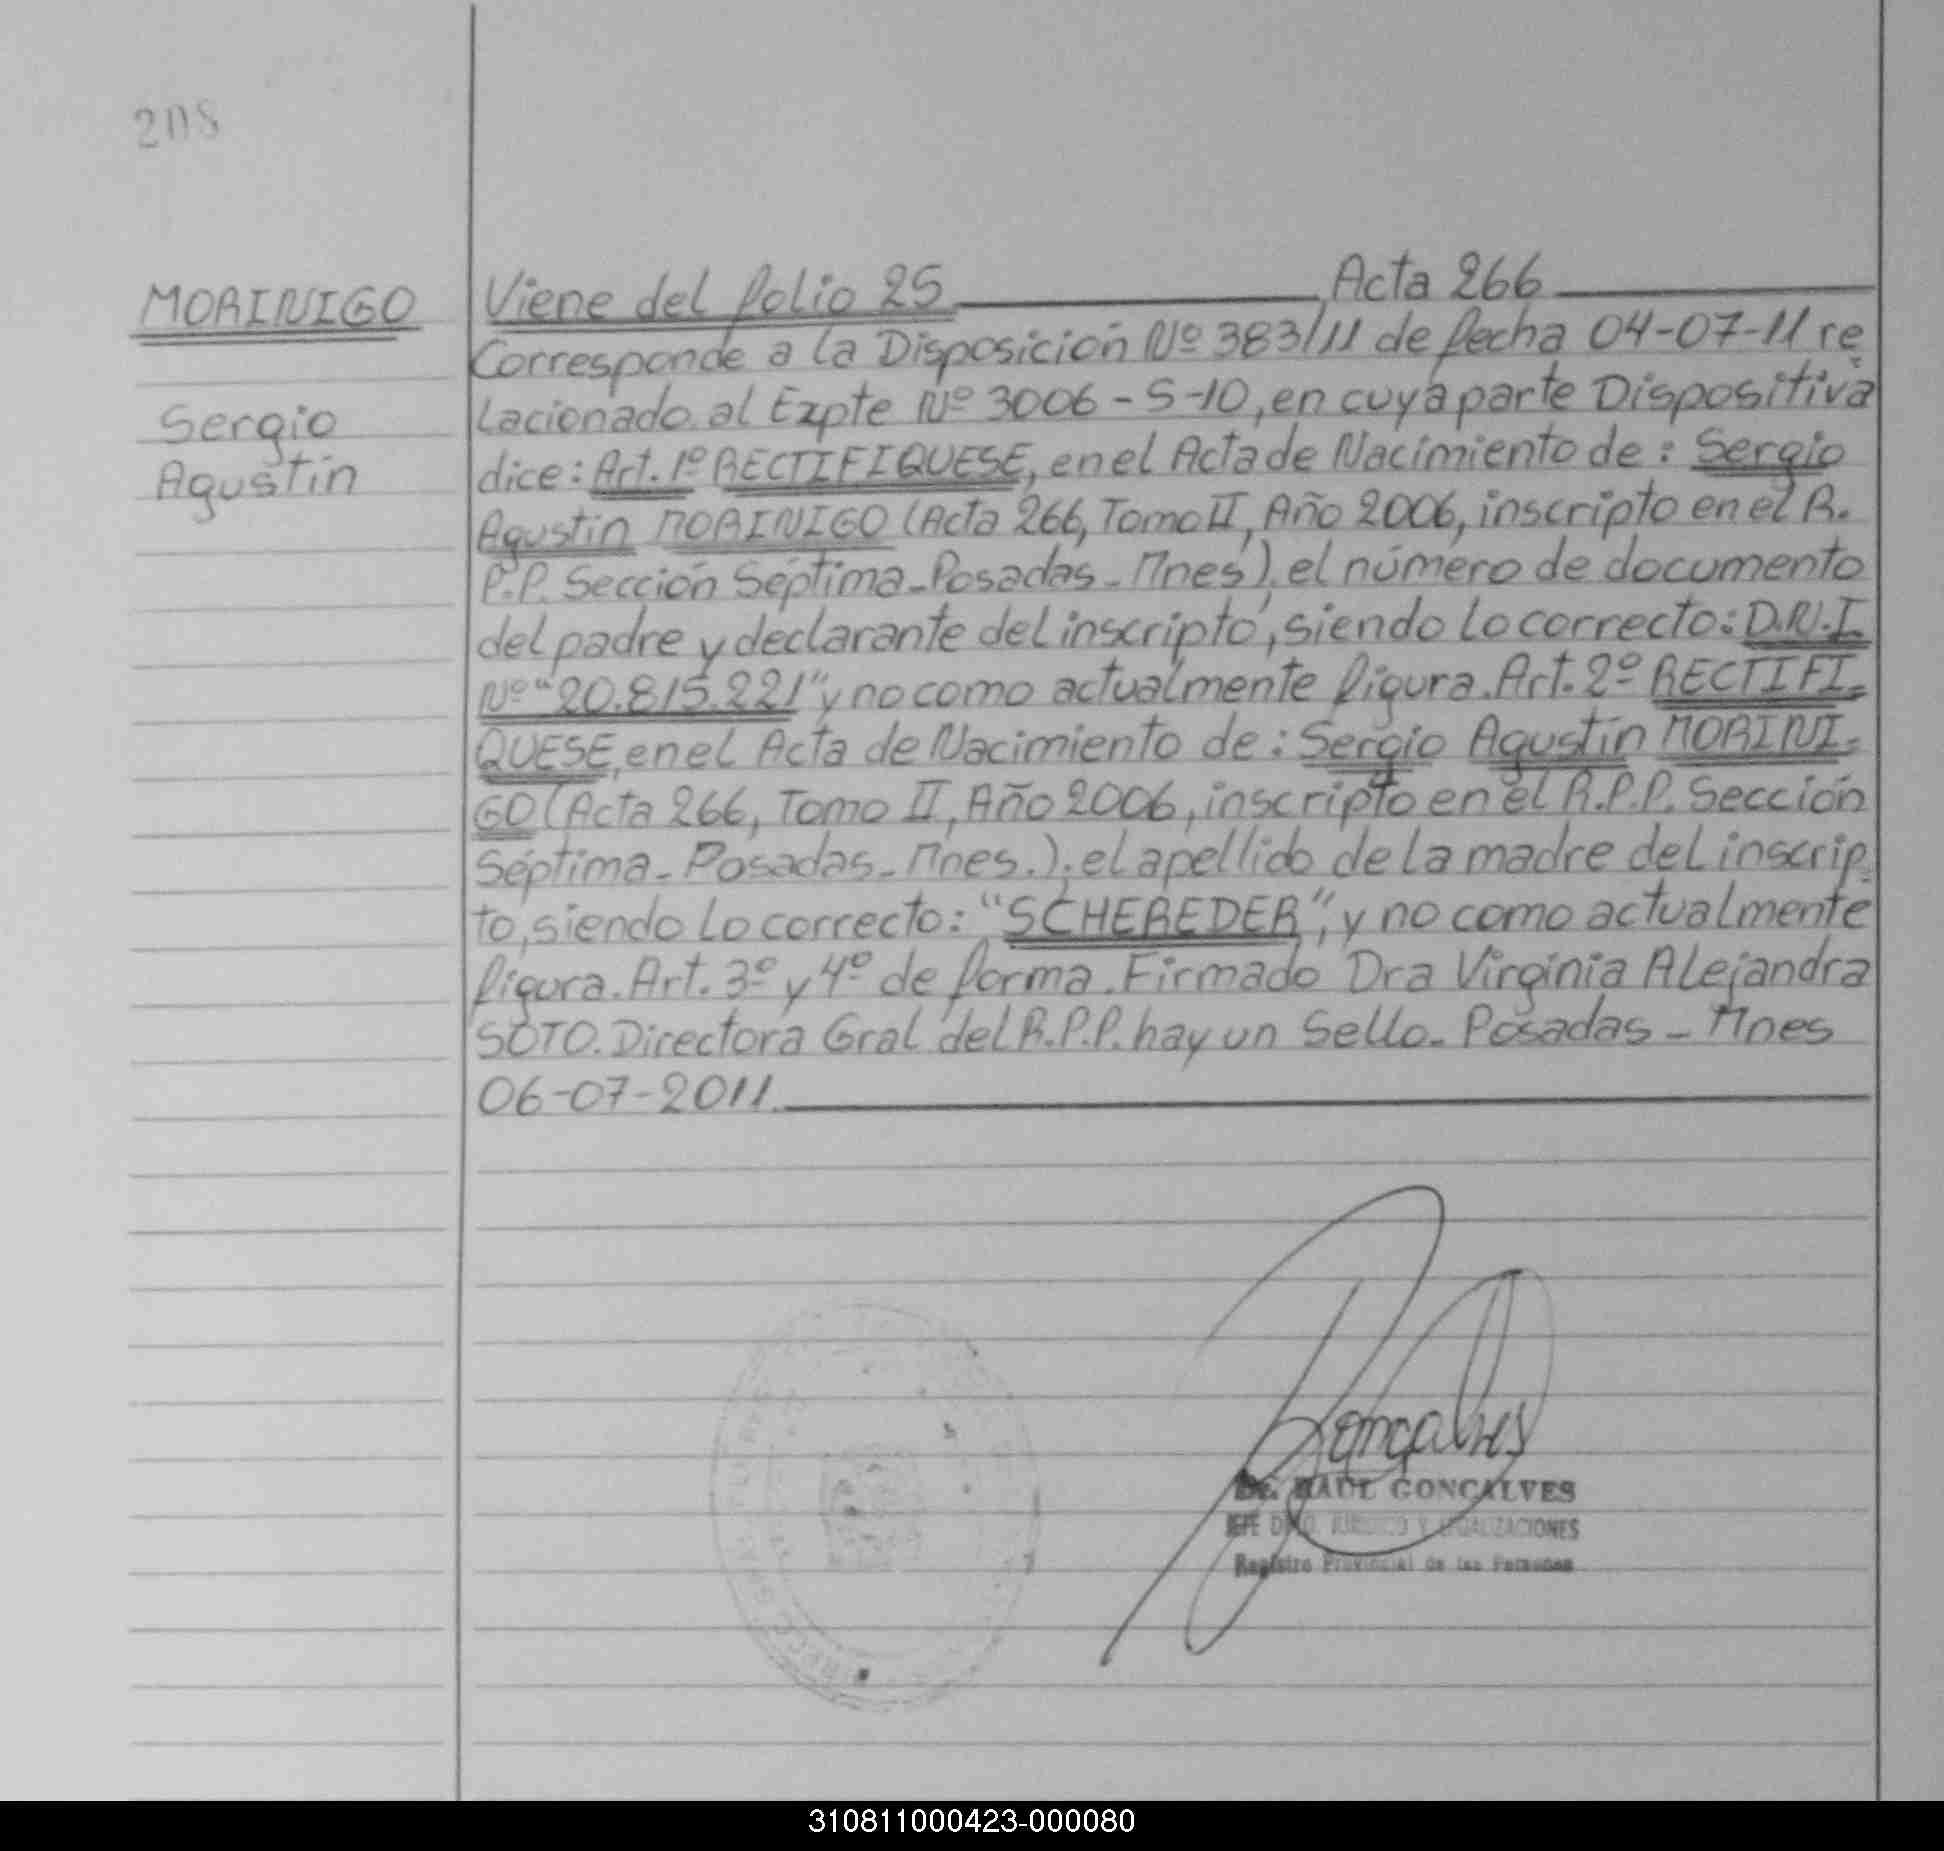 208
MORINIGO
Sergio
Agustin
Viene del folio 25 Acta 266
Corresponde a la Disposición Nº 383/11 de fecha 04-07-11 re
lacionado al Expte Nº 3006-S-10, en cuya parte Dispositiva
dice: Art. 1º RECTIFIQUESE, en el Acta de Nacimiento de: Sergio
Agustin MORINIGO (Acta 266, Tomo II, Año 2006, inscripto en el R.
P.P. Sección Séptima-Posadas-Mnes), el número de documento
del padre y declarante del inscripto, siendo lo correcto: D.N.I.
Nº "20.815.221" y no como actualmente figura. Art. 2º RECTIFI-
QUESE, en el Acta de Nacimiento de: Sergio Agustin MORINI-
GO (Acta 266, Tomo II, Año 2006, inscripto en el R.P.P. Sección
Séptima-Posadas-Mnes.), el apellido de la madre del inscrip-
to, siendo lo correcto: "SCHEREDER", y no como actualmente
figura. Art. 3º y 4º de forma. Firmado Dra Virginia Alejandra
SOTO. Directora Gral del R.P.P. hay un Sello- Posadas - Mnes
06-07-2011.
Gonçalves
Dr. RAUL GONCALVES
JEFE DPTO. JURIDICO Y LEGALIZACIONES
Registro Provincial de las Personas
310811000423-000080